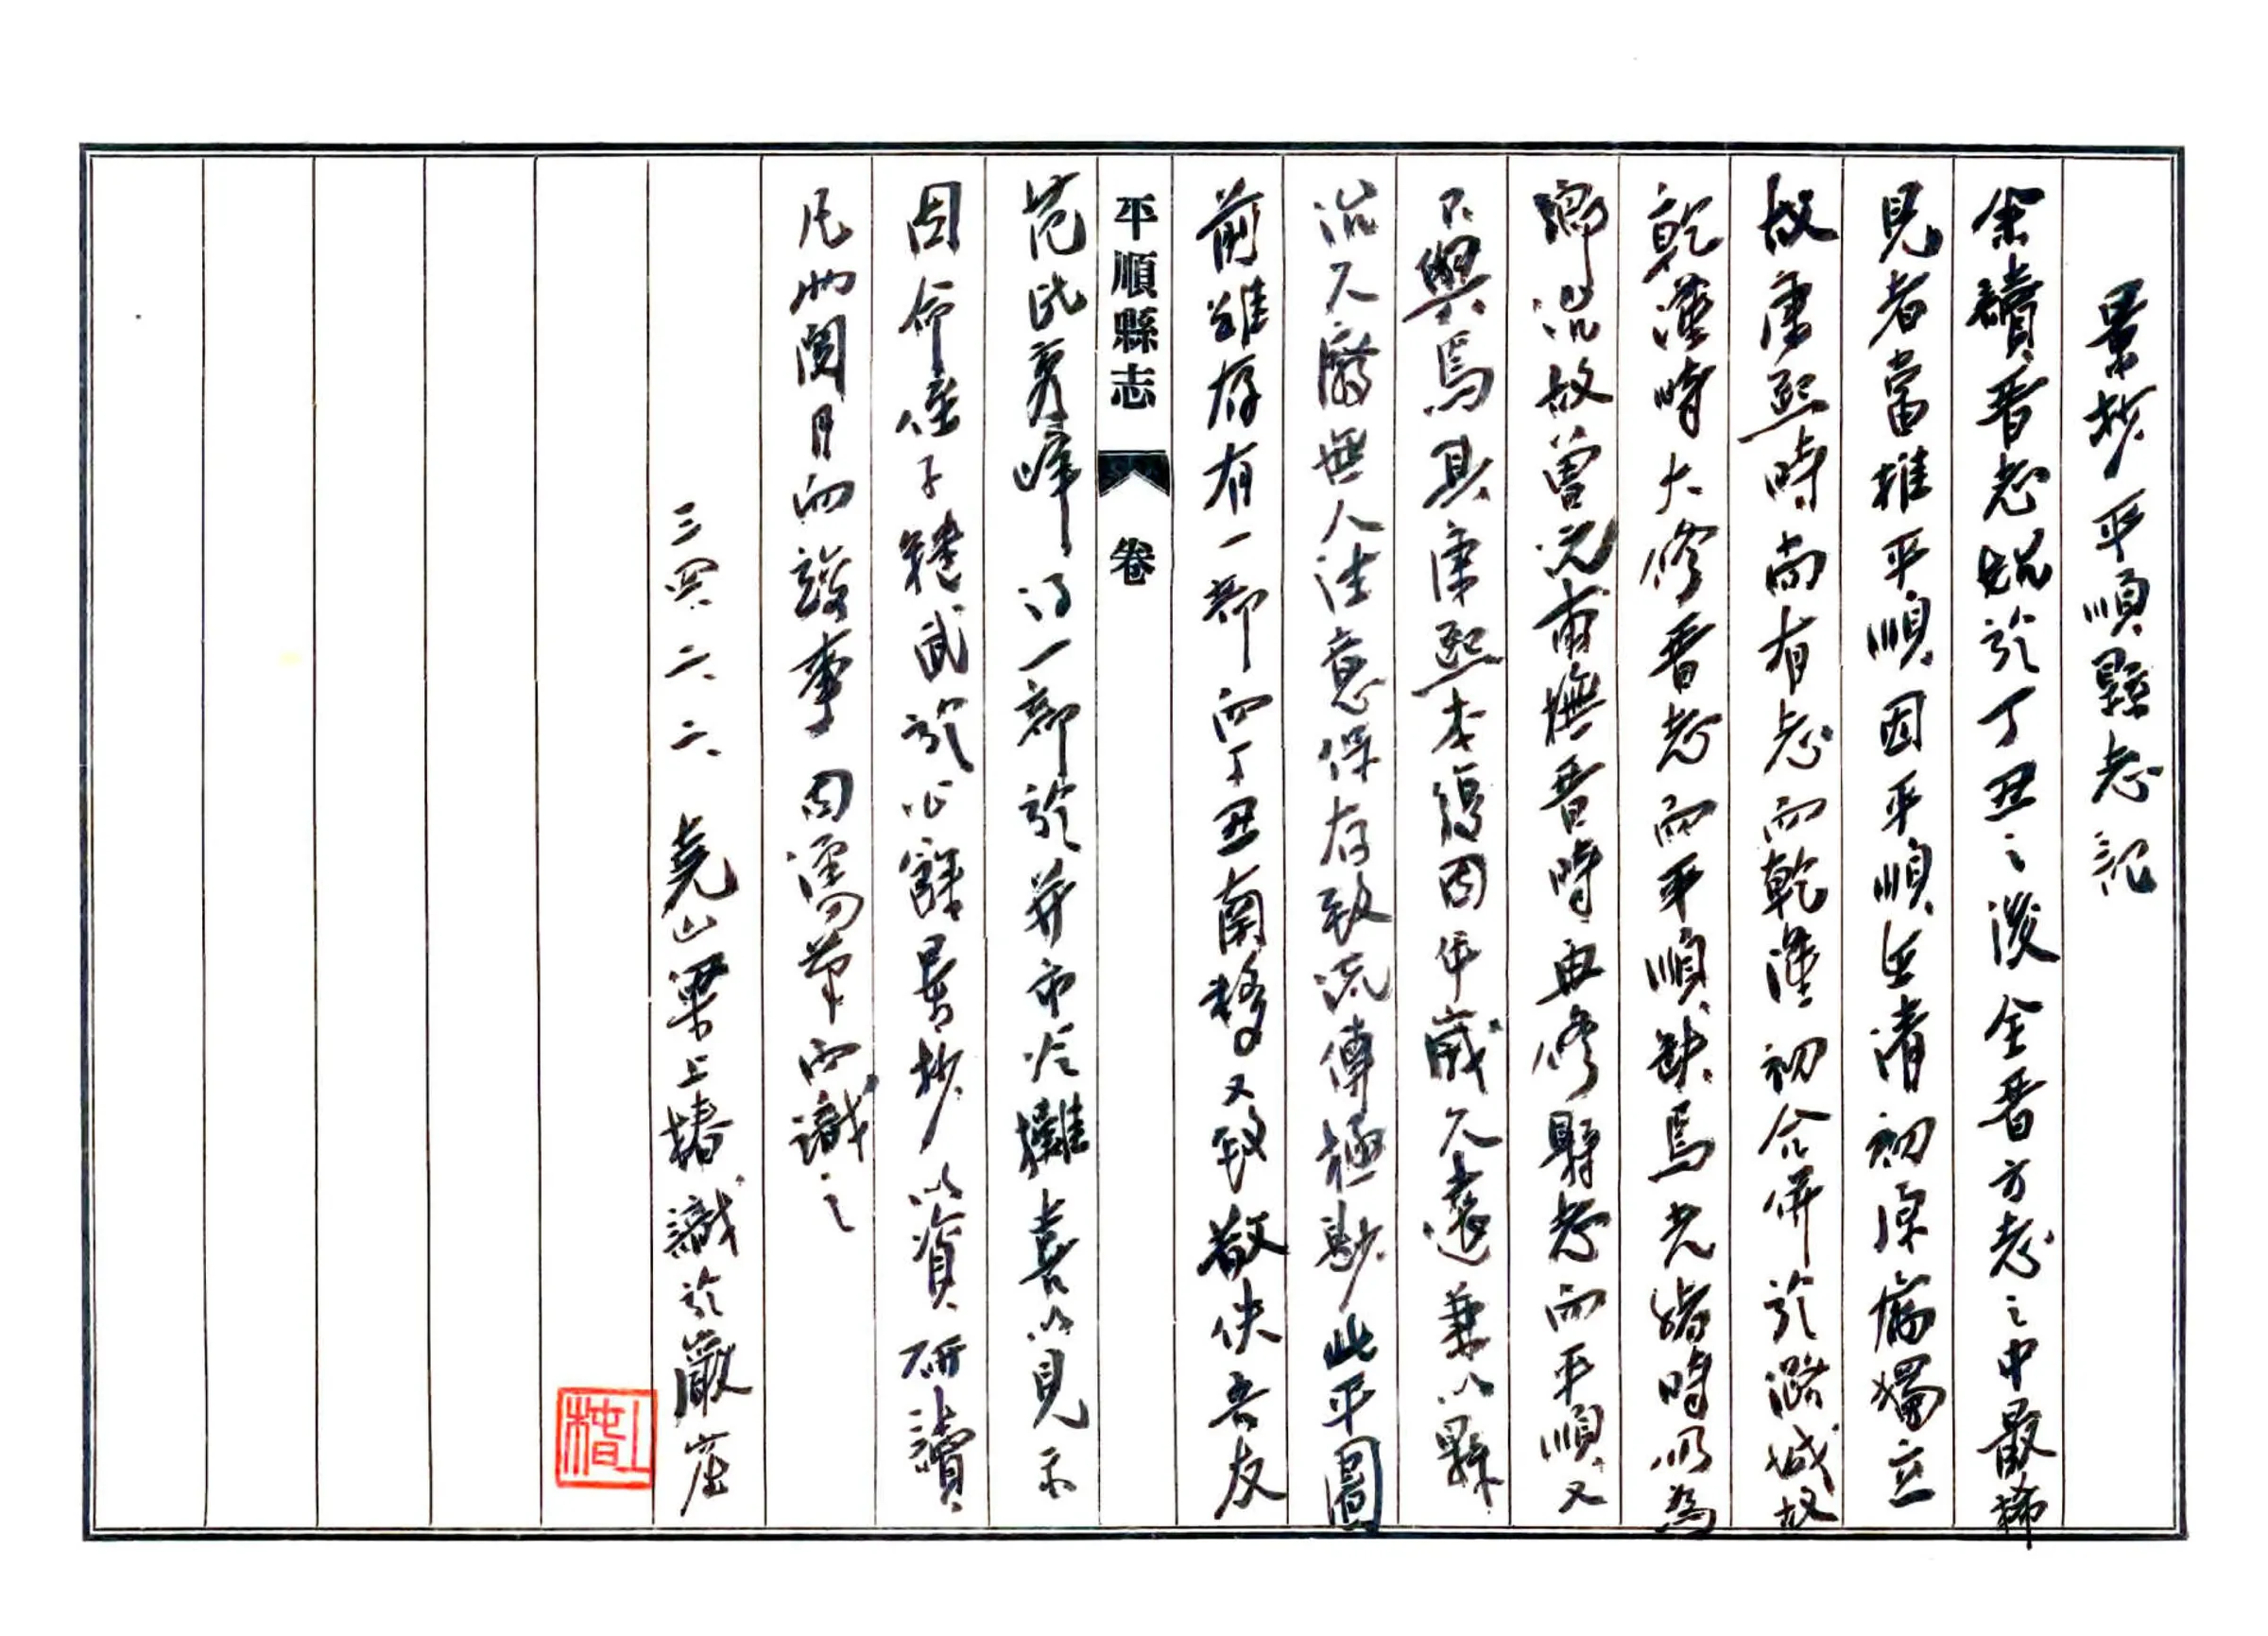 景抄平順縣志記
余讀晋志始於丁丑之後全晋方志之中最稀
見者當推平順因平順在清初原属獨立
故康熙時尚有志而乾隆初合併於潞城故
乾隆時大修晋志而平順缺焉光緒時仍為
鄉沿故曾沅甫撫晋時再修縣志而平順又
不與焉其康熙本復因年歲久遠兼以縣
治久廢無人注意保存致流傳極尠此平圖
前雖存有一部而丁丑南移又致散佚吾友
范氏秀峰得一部於并市冷攤喜以見示
因命侄子繩武於公餘景抄以資研讀
凡兩閱月而竣事因濡筆而識之
三四、六、六、堯山梁上椿識於嚴崖
平順縣志 卷
上椿